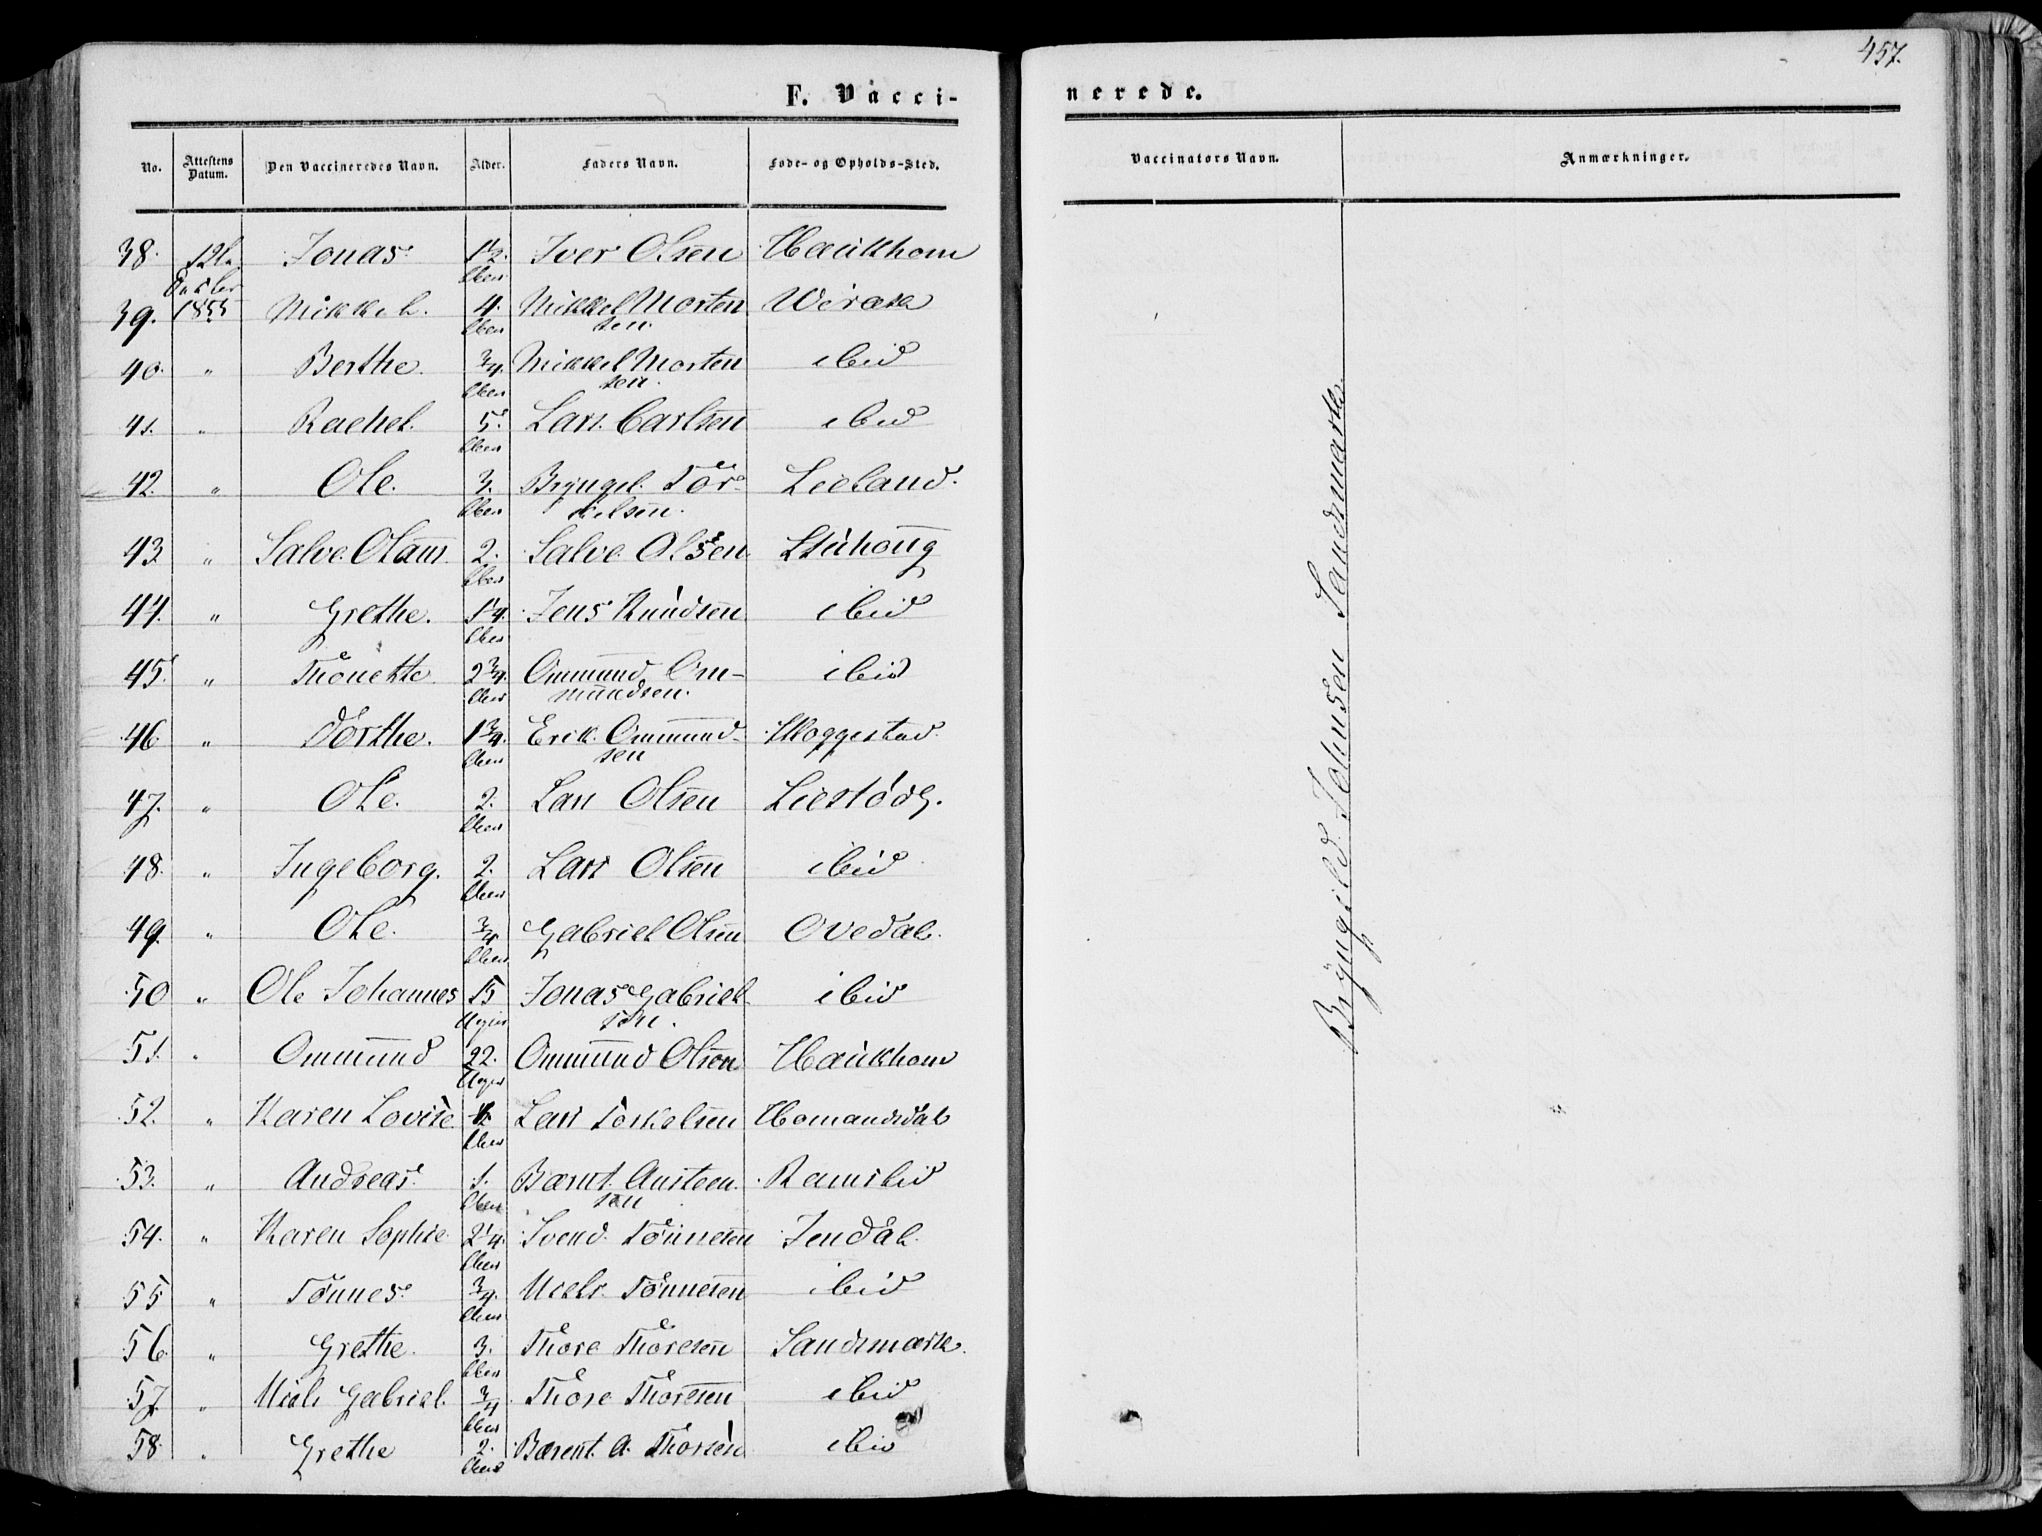 457.
F. Vacci-
nerede.
No. Attestens Datum. Den Vaccineredes Navn. Alder. Faders Navn. Føde- og Opholds-Sted. Vaccinators Navn. Anmærkninger.
38. 12te Octbr 1855 Jonas 1½ Aben Iver Olsen Haukhom
39. Mikkel. 4. Aben Mikkel Mortensen Virak
40. " Berthe. ¾. Aben Mikkel Mortensen. ibid
41. " Rachel. 5. Aben Lars Carlsen ibid
42. " Ole. 3. Aben Bryngel Torkelsen. Lieland.
43 " Salve Olaus 2. Aben Salve Olsen Stuhoug
44. " Grethe. 1¼. Aben Jens Knudsen ibid
45. " Thonette 2¾. Aben Ommund Ommundsen. ibid
46 " Dorthe. 1¾. Aben Erik Ommundsen Moggestad
47. " Ole. 2. Aben Lars Olsen Liestöel.
48. " Ingeborg. 2. Aben Lars Olsen ibid
49. " Ole. ¾ Aben Gabriel Olsen Ovedal.
50 " Ole Johannes 15 Uger Jonas Gabrielsen. ibid
51. " Ommund 22. Uger Ommund Olsen Haukhom
52. " Karen Lovise Aben Lars Torkelsen Homandsdal
53. " Andreas 1. Aben Bærnt Austeensen Ramslid
54. " Karen Sophie 2¼. Aben Svend Tönnesen Jendal
55 " Tönnes ¾. Aben Niels Tönnesen ibid
56. " Grethe. 3. Aben Thore Thoresen Sandsmark.
57. " Niels Gabriel. ¾ Aben Thore Thoresen ibid
58. " Grethe 2. Aben Bærent A. Thorsen ibid
Bryngild Johnsen Sandsmark.